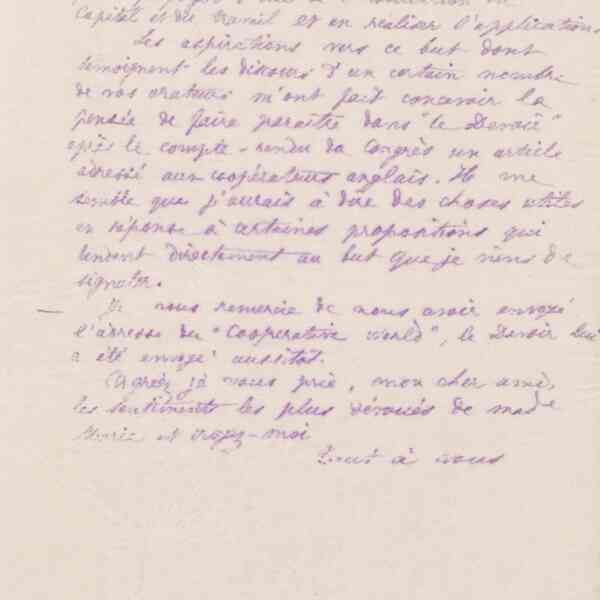 capital et du travail et en réaliser l'application
Les aspirations vers ce but dont
témoignent les discours d'un certain nombre
de vos orateurs m'ont fait concevoir la
pensée de faire paraître dans "le Devoir"
après le compte-rendu du Congrès un article
adressé aux coopérateurs anglais. Il me
semble que j'aurais à dire des choses utiles
en réponse à certaines propositions qui
tendent directement au but que je viens de
signaler.
Je vous remercie de nous avoir envoyé
l'adresse du "Cooperative World", le Devoir lui
a été envoyé aussitôt.
Agréez je vous prie, mon cher ami,
les sentiments les plus dévoués de made
Marie et croyez-moi
Tout à vous